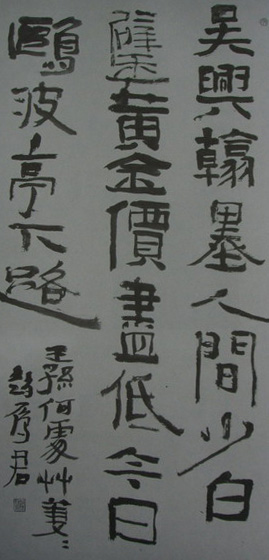 吳興翰墨人間少白
璧黃金價盡低今日
鷗波亭下路
王孫何處艸萋〻
君